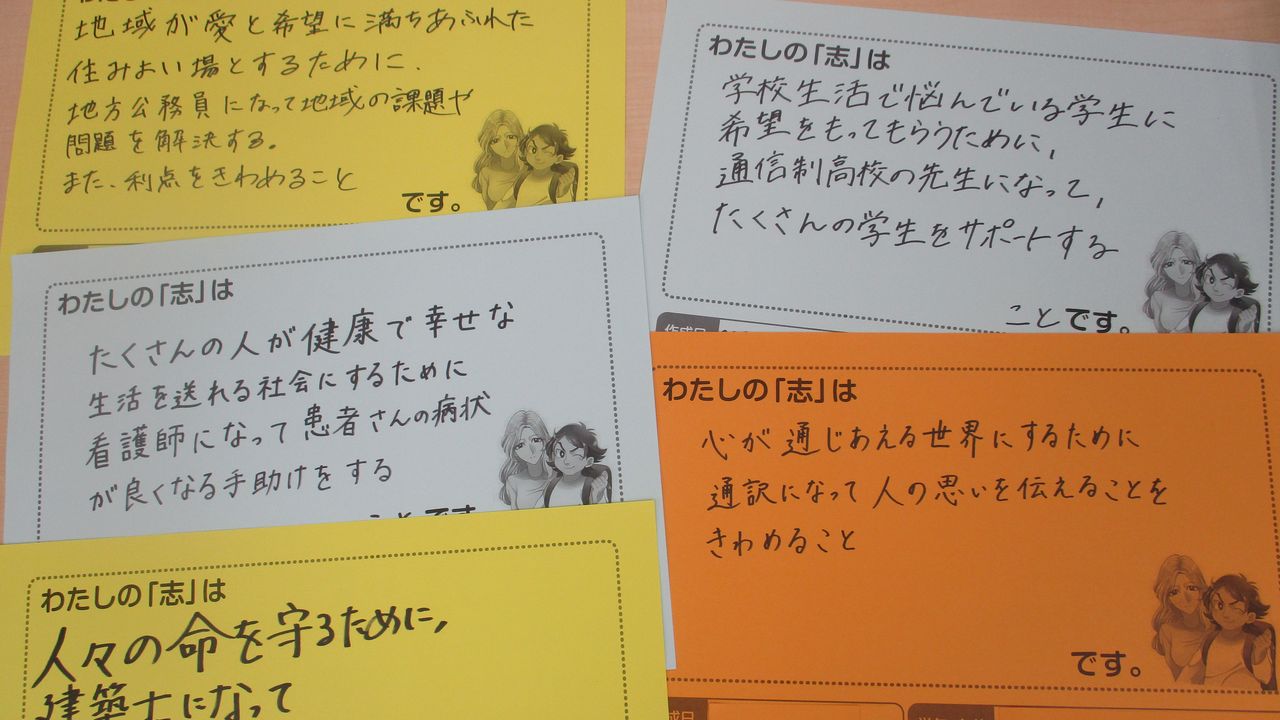 わたしの「志」は
地域が愛と希望に満ちあふれた
住みよい場とするために、
地方公務員になって地域の課題や
問題を解決する。
また、利点をきわめること
です。
わたしの「志」は
学校生活で悩んでいる学生に
希望をもってもらうために,
通信制高校の先生になって,
たくさんの学生をサポートする
こと です。
作成日
わたしの「志」は
たくさんの人が健康で幸せな
生活を送れる社会にするために
看護師になって患者さんの病状
が良くなる手助けをする
こと です。
わたしの「志」は
心が通じあえる世界にするために
通訳になって人の思いを伝えることを
きわめること
です。
わたしの「志」は
人々の命を守るために,
建築士になって